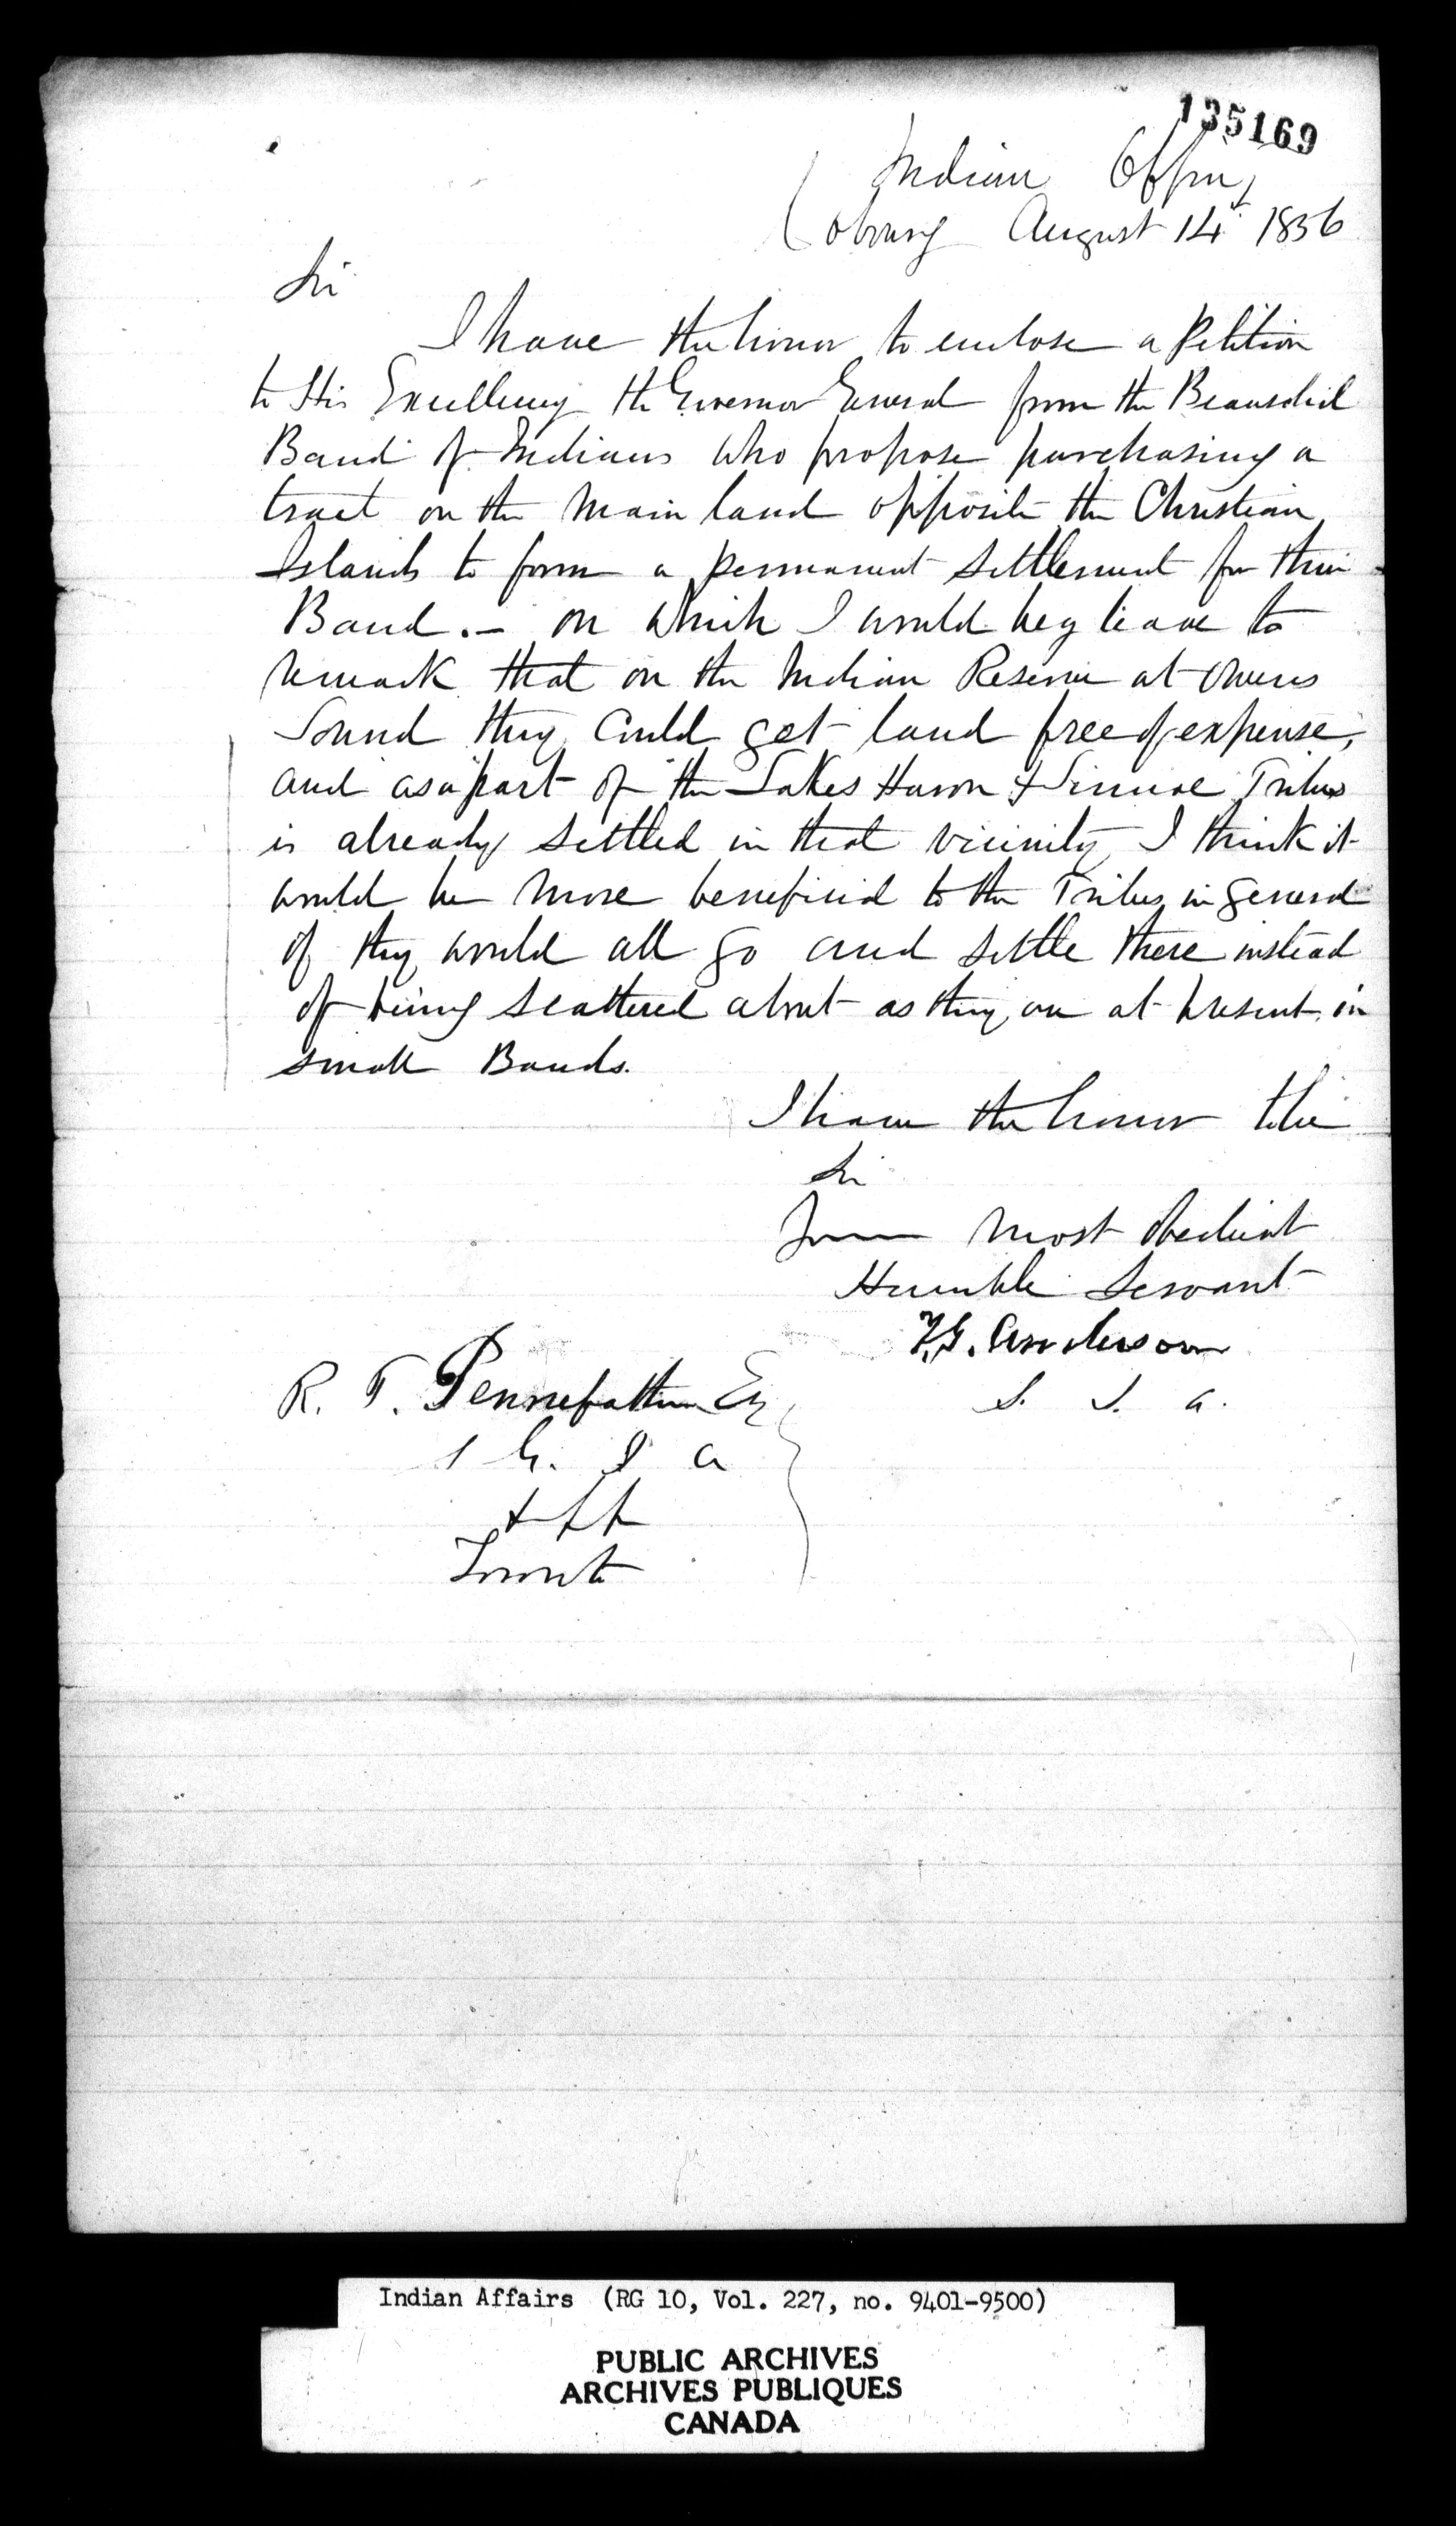 135169
Indian Office
Cobourg August 14th 1856
Sir
I have the honor to enclose a Petition
to His Excellency the Governor General from the Beausoliel
Band of Indians who propose purchasing a
tract on the Main land opposite the Christian
Islands to form a permanent settlement for their
Band. — On which I would beg leave to
remark that on the Indian Reserve at Owens
Sound they could get land free of expense,
and as a part of the Lakes Huron & Simcoe Tribes
is already settled in that vicinity I think it
would be more beneficial to the Tribes in general
if they would all go and settle there instead
of being scattered about as they are at present in
small Bands.
I have the honor to be
Sir
Your most obedient
Humble Servant
T.G. Anderson
S. I. A.
R. T. Pennefather Esq
S G. I A
& & &
Toronto
Indian Affairs (RG 10, Vol. 227, no. 9401-9500)
PUBLIC ARCHIVES
ARCHIVES PUBLIQUES
CANADA